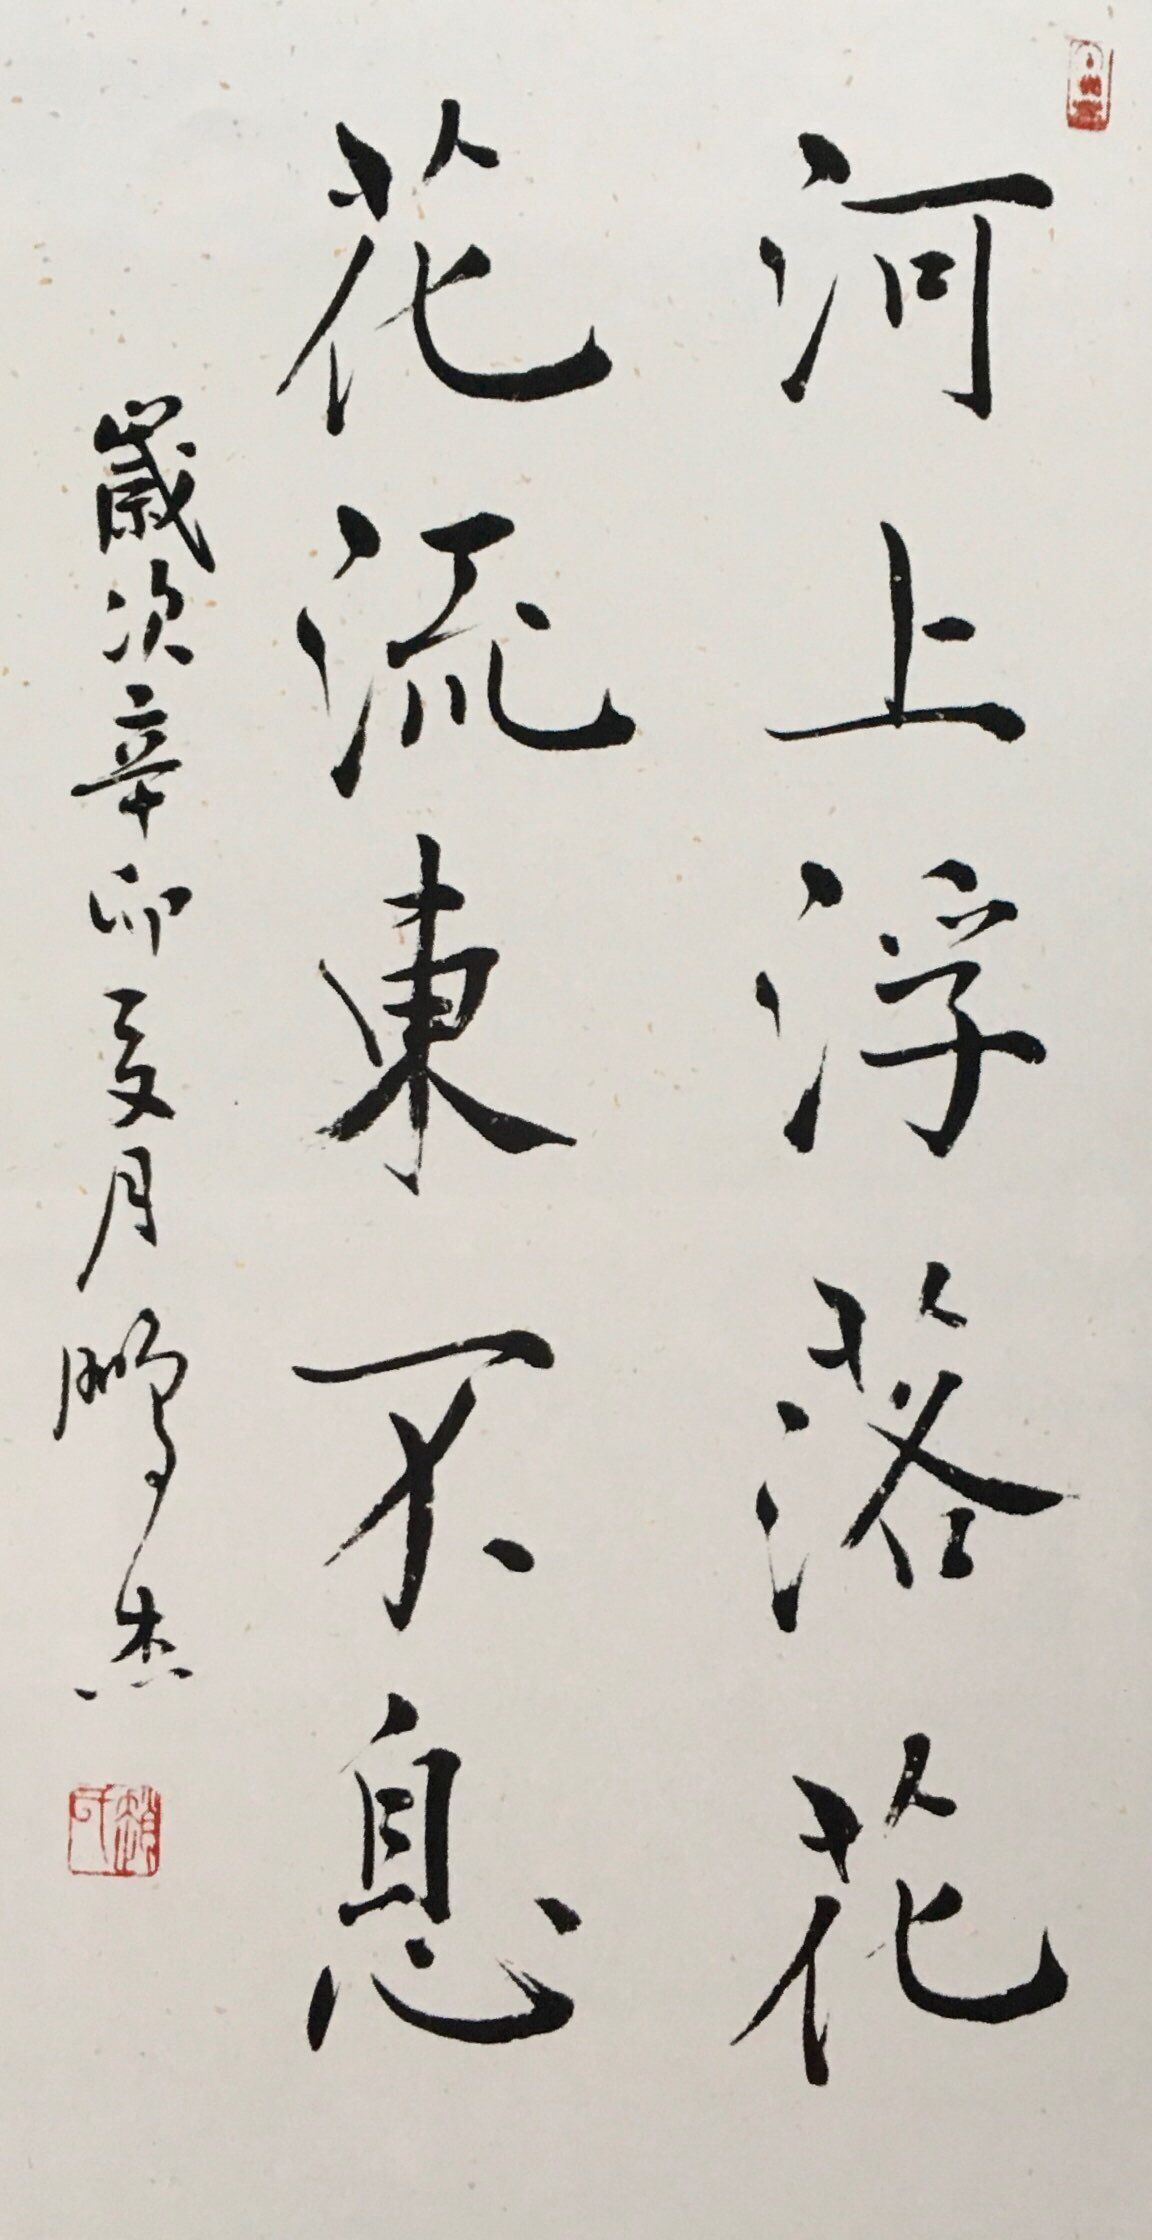 河上浮落花
花流東不息
歲次辛卯夏月鵬杰